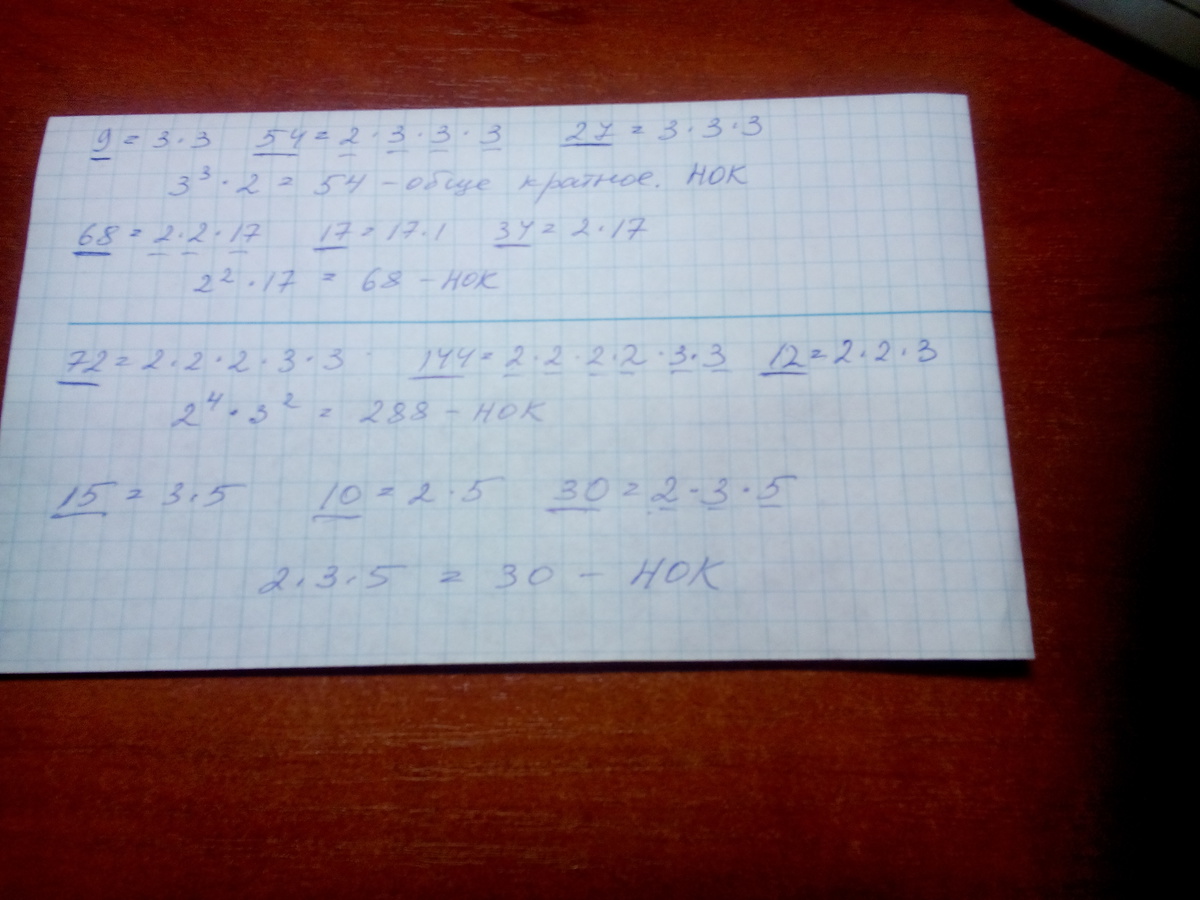 9 = 3·3 54 = 2·3·3·3 27 = 3·3·3
3³·2 = 54 – обще кратное. НОК
68 = 2·2·17 17 = 17·1 34 = 2·17
2²·17 = 68 – НОК
72 = 2·2·2·3·3 144 = 2·2·2·2·3·3 12 = 2·2·3
2⁴·3² = 288 – НОК
15 = 3·5 10 = 2·5 30 = 2·3·5
2·3·5 = 30 – НОК